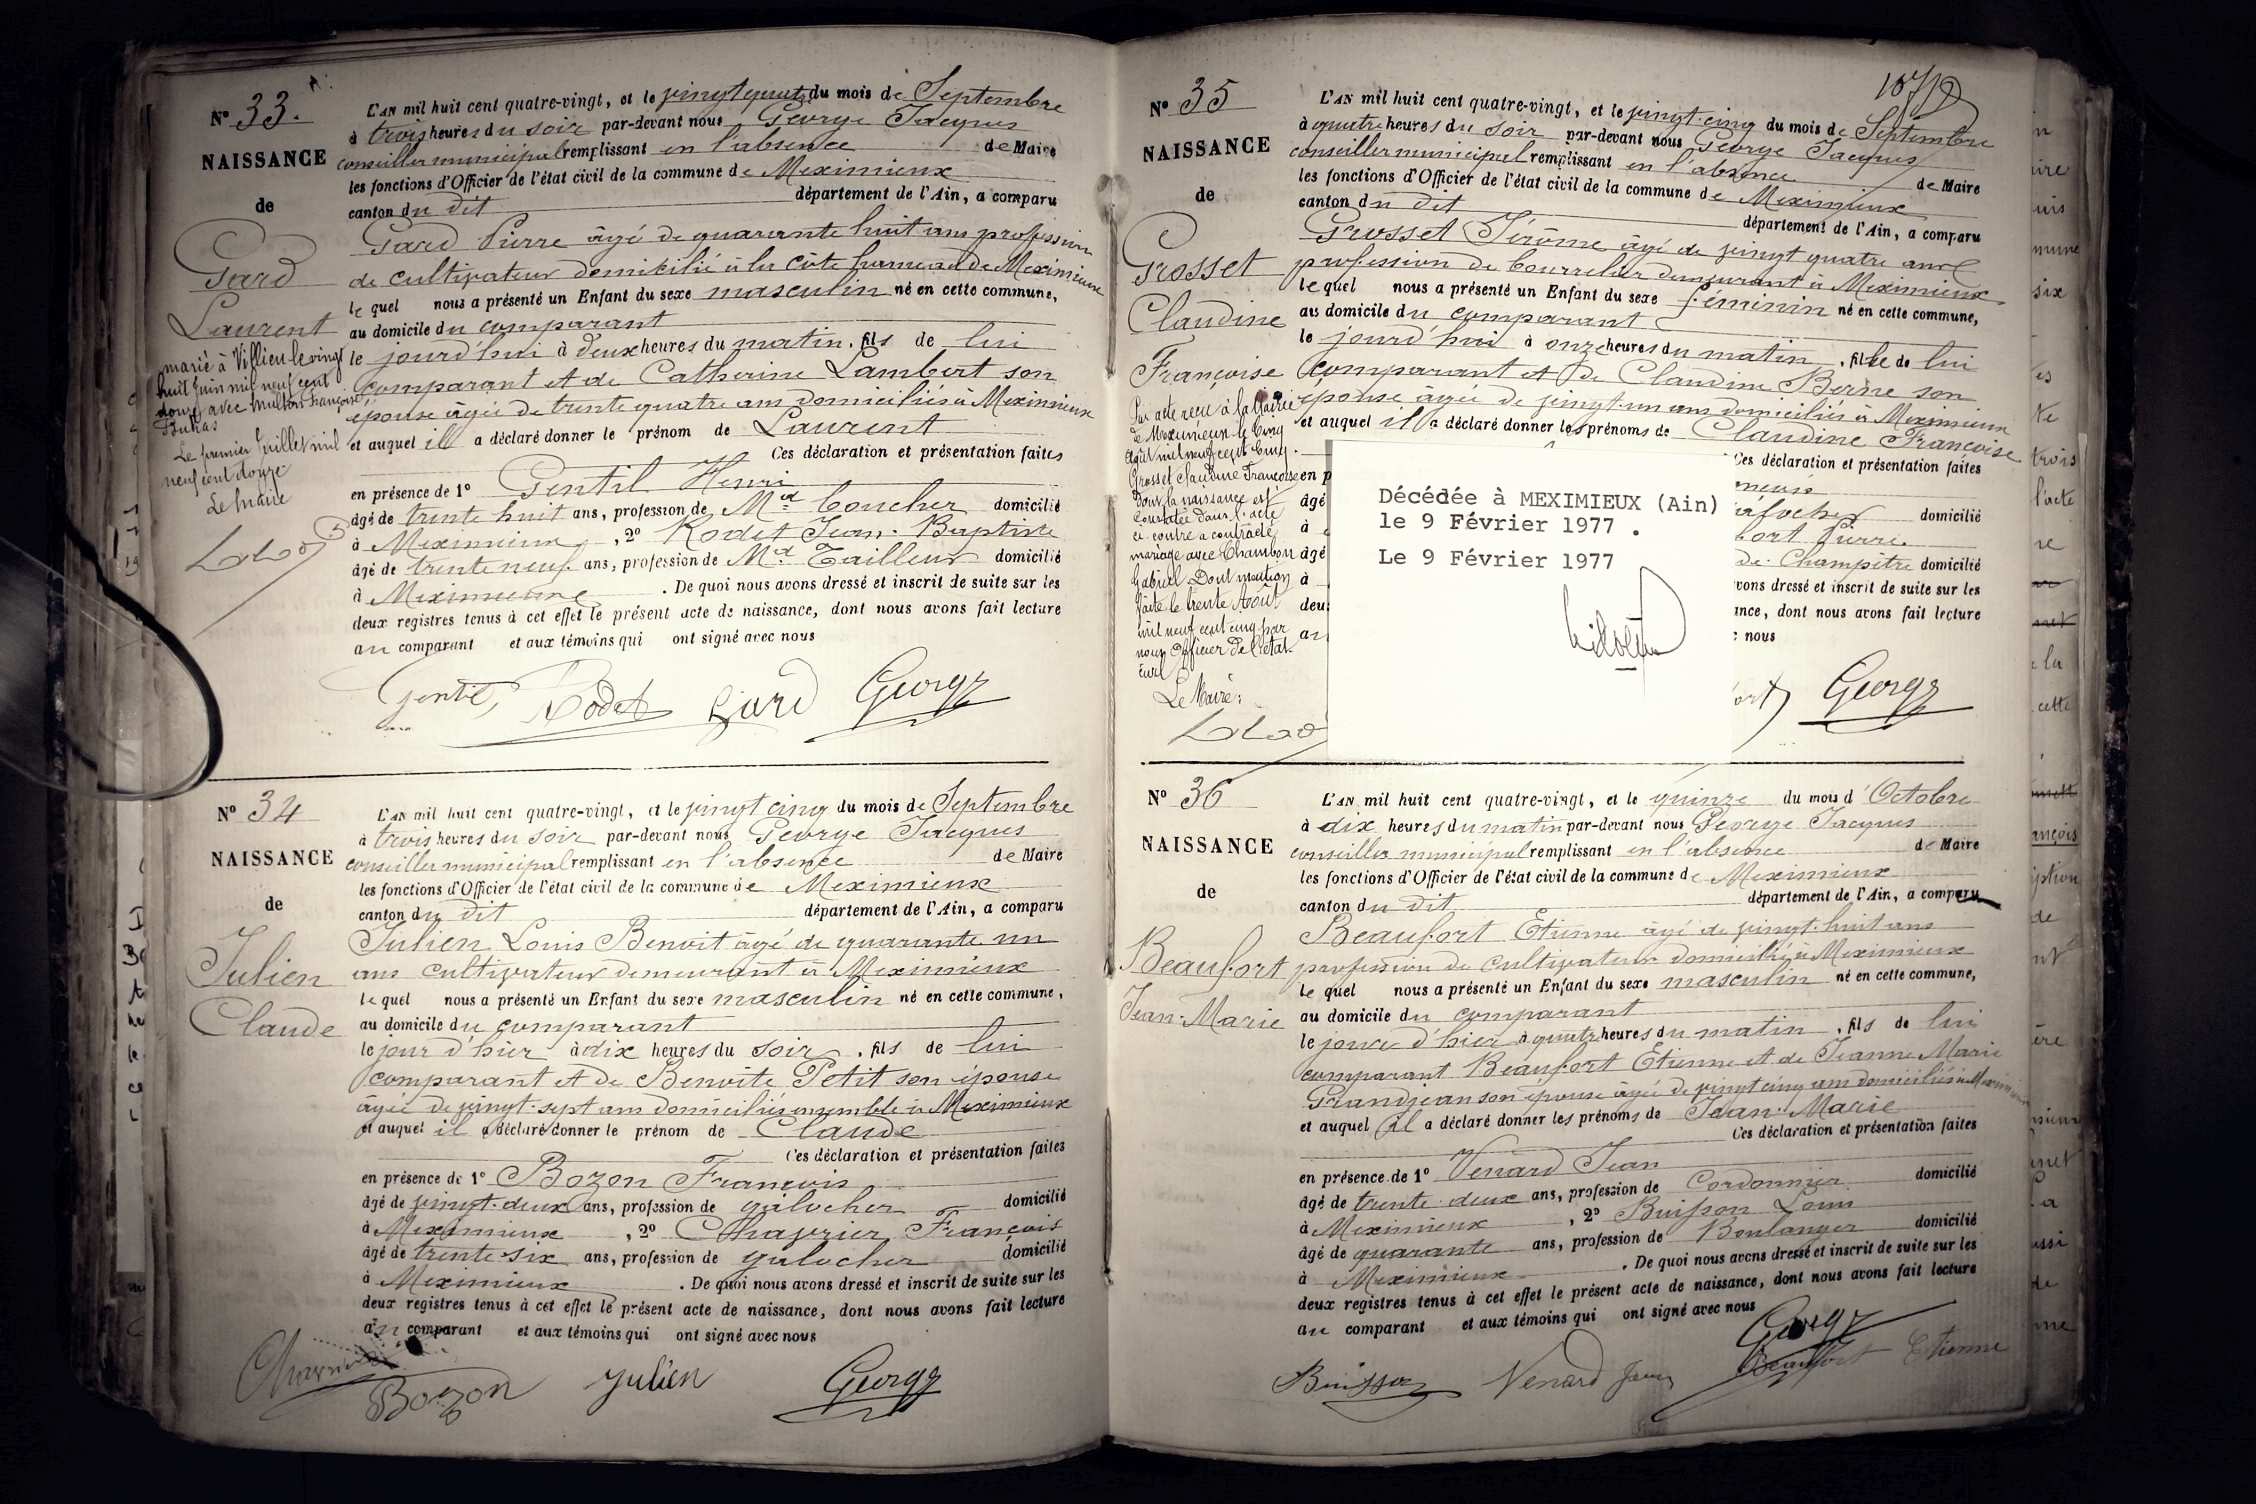 N° 33.
NAISSANCE
de
Gard
Laurent
marié à Villieu le vingt
huit Juin mil neuf cent
douze avec Multon Françoise
Le premier Juillet mil
neuf cent douze
Le Maire
L'AN mil huit cent quatre-vingt, et le vingt quatre du mois de Septembre
à trois heures du soir par-devant nous George Jacques
conseiller municipal remplissant en l'absence de Maire
les fonctions d'Officier de l'état civil de la commune de Meximieux
canton du dit département de l'Ain, a comparu
Gard Pierre âgé de quarante huit ans profession
de cultivateur domicilié à la côte hameau de Meximieux
le quel nous a présenté un Enfant du sexe masculin né en cette commune,
au domicile du comparant
le jourd'hui à deux heures du matin, fils de lui
comparant et de Catherine Lambert son
épouse âgée de trente quatre ans domiciliés à Meximieux
et auquel il a déclaré donner le prénom de Laurent
Ces déclaration et présentation faites
en présence de 1° Gentil Henri
âgé de trente huit ans, profession de Md boucher domicilié
à Meximieux, 2° Rodet Jean-Baptiste
âgé de trente neuf ans, profession de Md Tailleur domicilié
à Meximieux. De quoi nous avons dressé et inscrit de suite sur les
deux registres tenus à cet effet le présent acte de naissance, dont nous avons fait lecture
au comparant et aux témoins qui ont signé avec nous
Gentil Rodet Gard George
N° 34
NAISSANCE
de
Julien
Claude
L'AN mil huit cent quatre-vingt, et le vingt cinq du mois de Septembre
à trois heures du soir par-devant nous George Jacques
conseiller municipal remplissant en l'absence de Maire
les fonctions d'Officier de l'état civil de la commune de Meximieux
canton du dit département de l'Ain, a comparu
Julien Louis Benoit âgé de quarante un
ans cultivateur demeurant à Meximieux
le quel nous a présenté un Enfant du sexe masculin né en cette commune,
au domicile du comparant
le jour d'hier à dix heures du soir, fils de lui
comparant et de Benoite Petit son épouse
âgée de vingt-sept ans domiciliés ensemble à Meximieux
et auquel il a déclaré donner le prénom de Claude
Ces déclaration et présentation faites
en présence de 1° Bozon François
âgé de vingt-deux ans, profession de galocher domicilié
à Meximieux, 2° Chavrier François
âgé de trente-six ans, profession de galocher domicilié
à Meximieux. De quoi nous avons dressé et inscrit de suite sur les
deux registres tenus à cet effet le présent acte de naissance, dont nous avons fait lecture
au comparant et aux témoins qui ont signé avec nous
Chavrier Bozon Julien George
N° 35
NAISSANCE
de
Grosset
Claudine
Françoise
Par acte reçu à la Mairie
de Meximieux le Cinq
Août mil neuf cent Cinq.
Grosset Claudine Françoise
dont la naissance est
constatée dans l'acte
ci contre a contracté
mariage avec Chambon
Gabriel Dont mention
faite le trente Août
mil neuf cent cinq par
nous Officier de l'état-
civil
Le Maire:
L'AN mil huit cent quatre-vingt, et le vingt-cinq du mois de Septembre
à quatre heures du soir par-devant nous George Jacques
conseiller municipal remplissant en l'absence de Maire
les fonctions d'Officier de l'état civil de la commune de Meximieux
canton du dit département de l'Ain, a comparu
Grosset Jérôme âgé de vingt quatre ans
profession de bourrelier demeurant à Meximieux
le quel nous a présenté un Enfant du sexe féminin né en cette commune,
au domicile du comparant
le jourd'hui à onze heures du matin, fille de lui
comparant et de Claudine Berne son
épouse âgée de vingt-un ans domiciliés à Meximieux
et auquel il a déclaré donner les prénoms de Claudine Françoise
Ces déclaration et présentation faites
en p
âgé galocher domicilié
à ort Pierre.
âgé de Champitre domicilié
à vons dressé et inscrit de suite sur les
deu ance, dont nous avons fait lecture
au nous
Décédée à MEXIMIEUX (Ain)
le 9 Février 1977.
Le 9 Février 1977
George
N° 36
NAISSANCE
de
Beaufort
Jean-Marie
L'AN mil huit cent quatre-vingt, et le quinze du mois d'Octobre
à dix heures du matin par-devant nous George Jacques
conseiller municipal remplissant en l'absence de Maire
les fonctions d'Officier de l'état civil de la commune de Meximieux
canton du dit département de l'Ain, a comparu
Beaufort Etienne âgé de vingt-huit ans
profession de cultivateur domicilié à Meximieux
le quel nous a présenté un Enfant du sexe masculin né en cette commune,
au domicile du comparant
le jour d'hier à quatre heures du matin, fils de lui
comparant Beaufort Etienne et de Jeanne Marie
Grandjean son épouse âgée de vingt cinq ans domiciliés à Meximieux
et auquel il a déclaré donner les prénoms de Jean-Marie
Ces déclaration et présentation faites
en présence de 1° Venard Jean
âgé de trente-deux ans, profession de Cordonnier domicilié
à Meximieux, 2° Buisson Louis
âgé de quarante ans, profession de Boulanger domicilié
à Meximieux. De quoi nous avons dressé et inscrit de suite sur les
deux registres tenus à cet effet le présent acte de naissance, dont nous avons fait lecture
au comparant et aux témoins qui ont signé avec nous
George
Buisson Venard Jean Beaufort Etienne